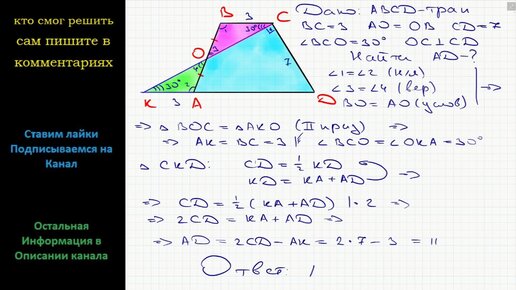 кто смог решить
сам пишите в
комментариях
Ставим лайки
Подписываемся на
Канал
Остальная
Информация в
Описании канала
B 3 C
30°
O
7
30°
K 3 A D
Дано: ABCD-трап
BC=3 AO=OB CD=7
∠BCO=30° OC⊥CD
Найти AD-?
∠1=∠2 (н/л)
∠3=∠4 (вер)
BO=AO (услов)
⇒ △BOC=△AKO (II приз)
⇒ AK=BC=3 ∠BCO=∠OKA=30°
△CKD: CD=½KD
KD=KA+AD ⇒
⇒ CD=½(KA+AD) |·2 ⇒
⇒ 2CD=KA+AD ⇒
⇒ AD=2CD-AK=2·7-3=11
Ответ: 1